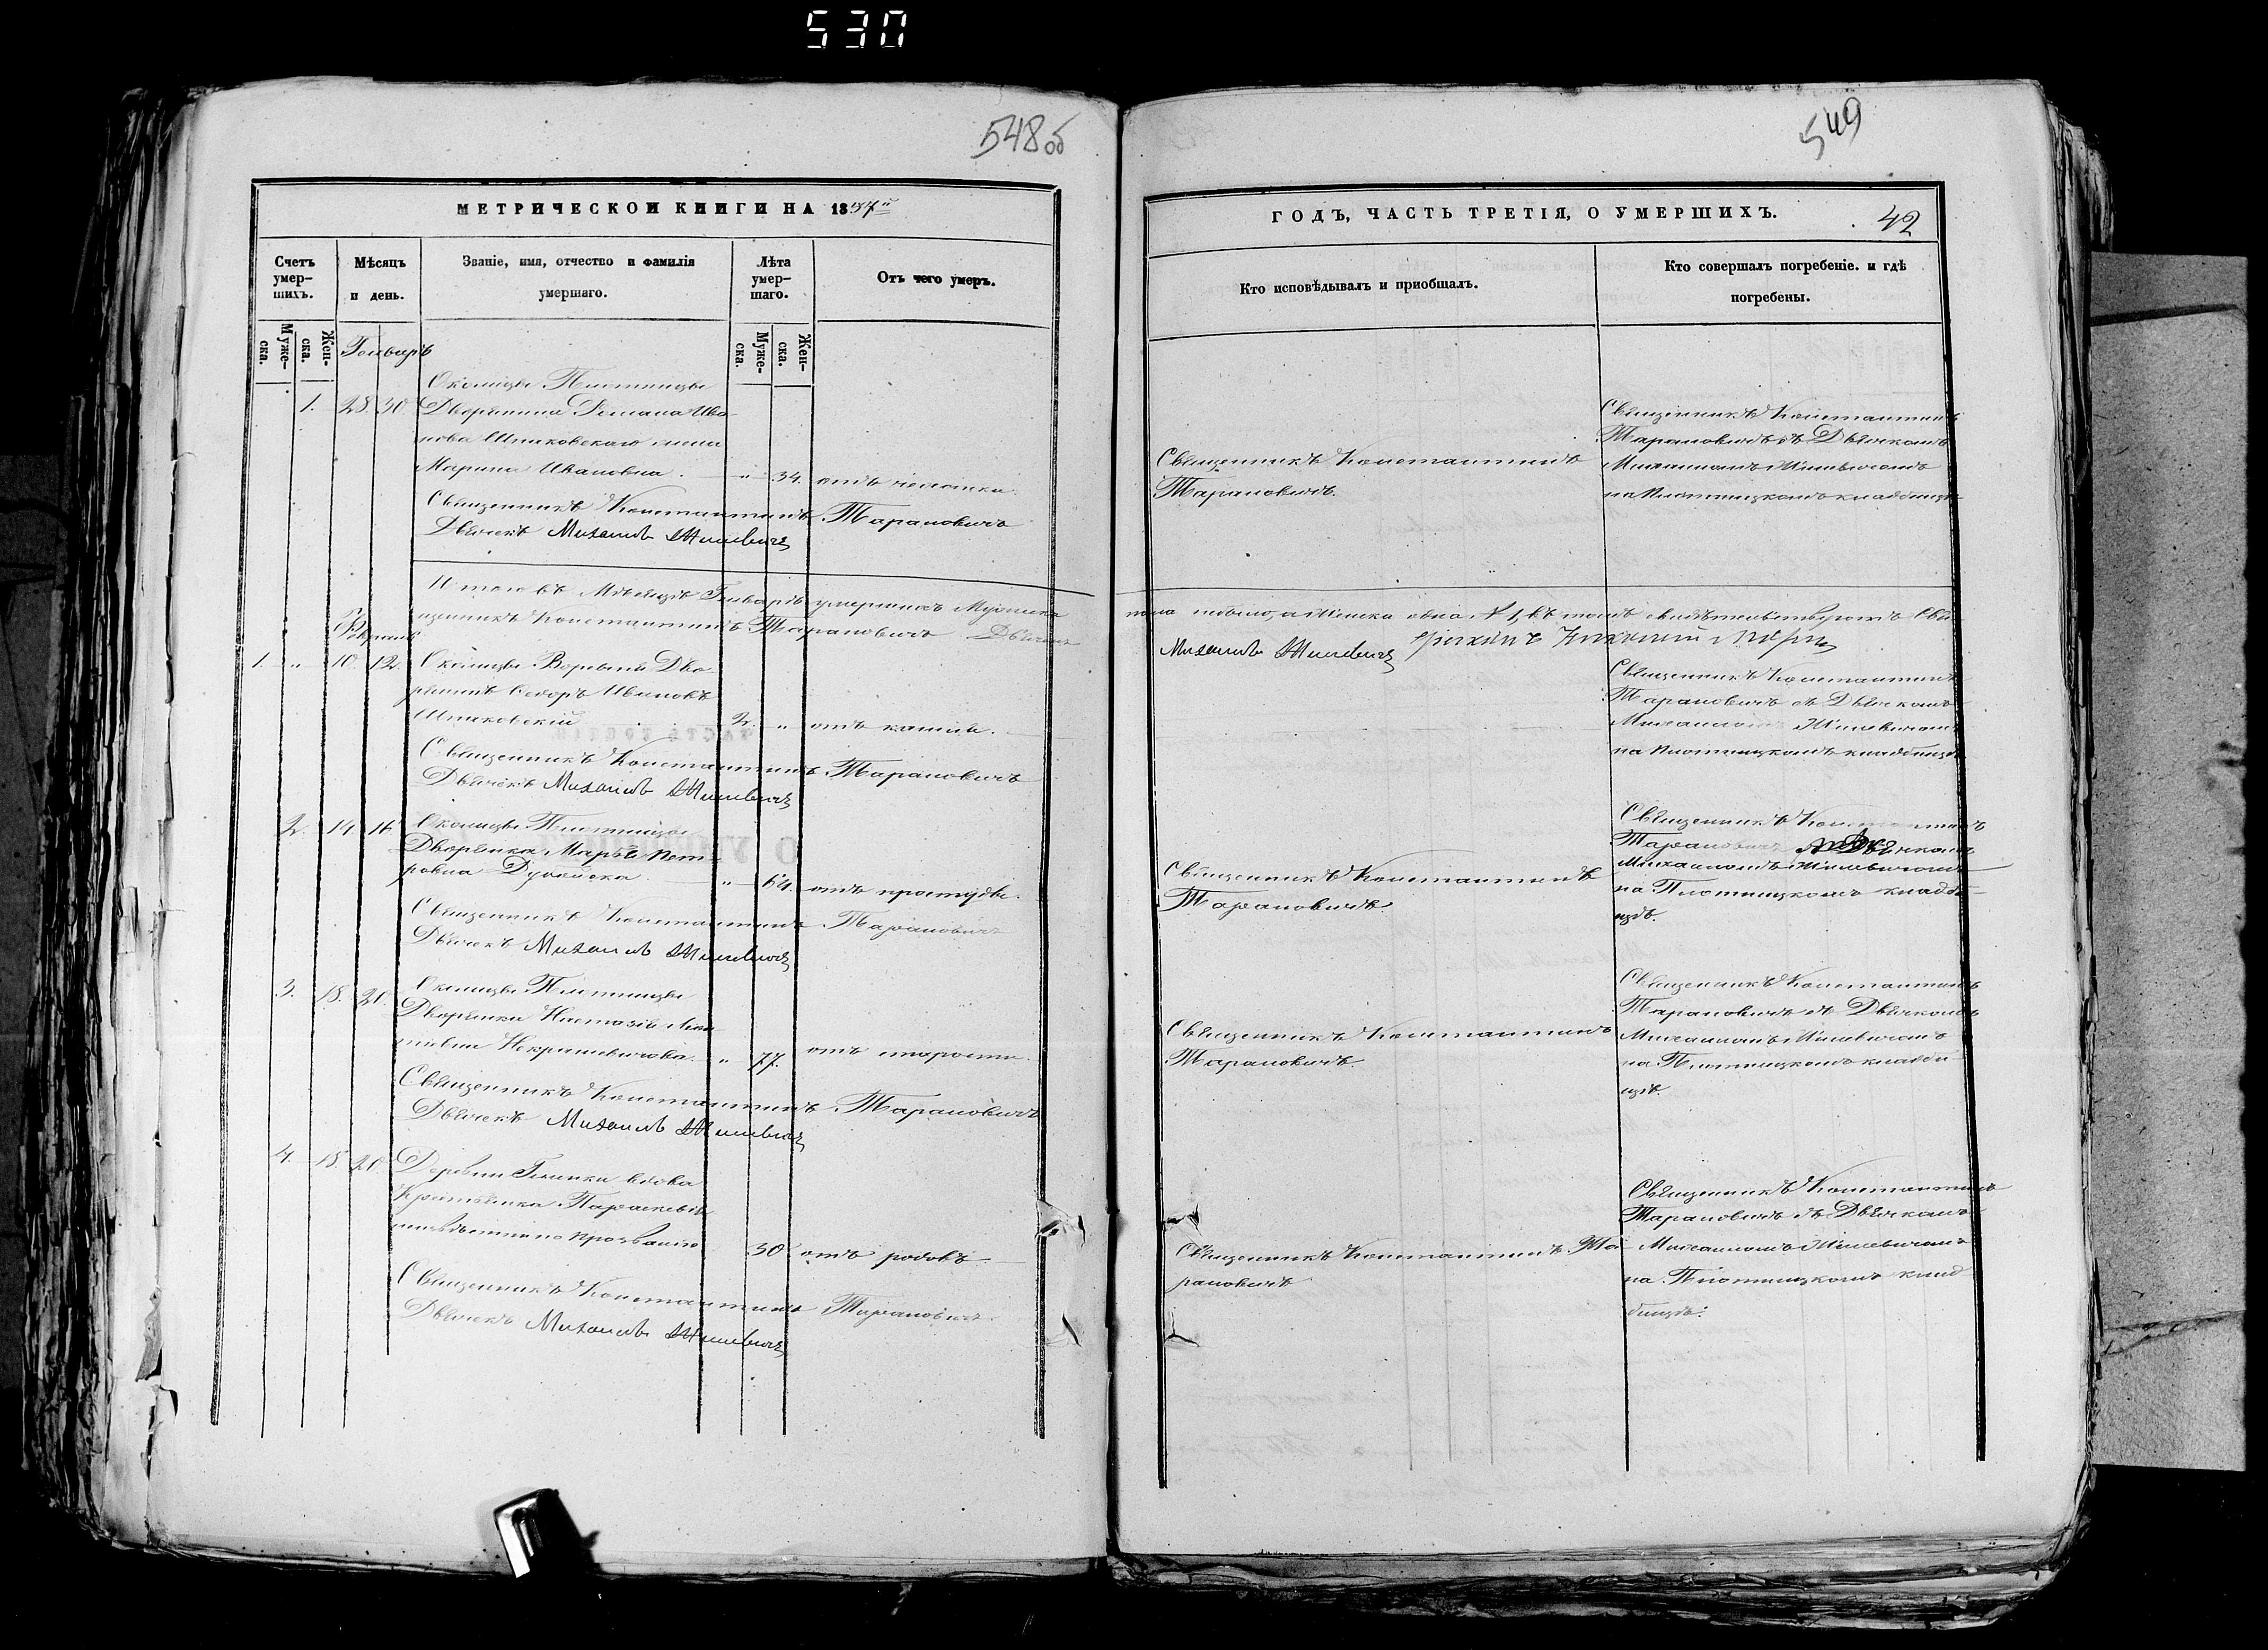 530
548 об
МЕТРИЧЕСКОЙ КНИГИ НА 1857й
Счетъ умер-шихъ.
Мужеска.
Женска.
Мѣсяцъ и день.
Званіе, имя, отчество и фамилія умершаго.
Лѣта умер-шаго.
Мужеска.
Женска.
Отъ чего умеръ.
Генварь
Околицы Плотницы
1. 28. 30. Дворянина Романа Ива-
нова Шпаковскаго жена
Марина Иванова. " 34. отъ чахотки.
Священникъ Константинъ Тарановичъ
Дьячекъ Михаилъ Жилевичъ
Итого въ Мѣсяцѣ Генварѣ умершихъ Мужеска
щенникъ Константинъ Тарановичъ Дьячекъ
Февраль
1. " 10. 12. Околицы Дво-
рянинъ Ѳедоръ Ивановъ
Шпаковскій 2. " отъ кашля.
Священникъ Константинъ Тарановичъ
Дьячекъ Михаилъ Жилевичъ
2. 14. 16. Околицы Плотницы
Дворянка Марья Пет-
ровна " 64. отъ простуды.
Священникъ Константинъ Тарановичъ
Дьячекъ Михаилъ Жилевичъ
3. 18. 20. Околицы Плотницы
Дворянка Настазія
" 77. отъ старости.
Священникъ Константинъ Тарановичъ
Дьячекъ Михаилъ Жилевичъ
4. 18. 20. Деревни вдова
Крестьянка Параскевія
по прозванію 30. отъ родовъ.
Священникъ Константинъ Тарановичъ
Дьячекъ Михаилъ Жилевичъ
549
ГОДЪ, ЧАСТЬ ТРЕТІЯ, О УМЕРШИХЪ.
42
Кто исповѣдывалъ и пріобщалъ.
Кто совершалъ погребеніе. и гдѣ погребены.
Священникъ Константинъ
Тарановичъ.
Священникъ Константинъ
Тарановичъ съ Дьячкомъ
Михаиломъ Жилевичемъ
на Плотницкомъ кладбищѣ
пола а Женска одна № 1, въ томъ свидѣтельствуютъ Свя
Михаилъ Жилевичъ
Священникъ Константинъ
Тарановичъ съ Дьячкомъ
Михаиломъ Жилевичемъ
на Плотницкомъ кладбищѣ
Священникъ Константинъ
Тарановичъ.
Священникъ Константинъ
Тарановичъ съ Дьячкомъ
Михаиломъ Жилевичемъ
на Плотницкомъ кладби-
щѣ.
Священникъ Константинъ
Тарановичъ.
Священникъ Константинъ
Тарановичъ съ Дьячкомъ
Михаиломъ Жилевичемъ
на Плотницкомъ кладби-
щѣ.
Священникъ Константинъ Та-
рановичъ
Священникъ Константинъ
Тарановичъ съ Дьячкомъ
Михаиломъ Жилевичемъ
на Плотницкомъ клад-
бищѣ.